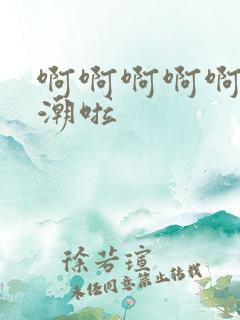 啊啊啊啊啊
潮啦
徐若瑄
未经同意禁止转载